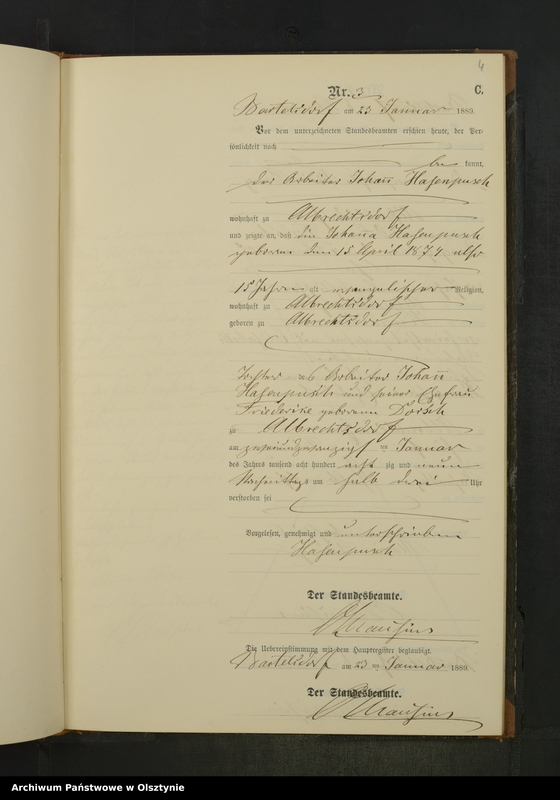 4
Nr. 3 C.
Bartelsdorf am 23 Januar 1889.
Vor dem unterzeichneten Standesbeamten erschien heute, der Per-
sönlichkeit nach
be kannt,
der Arbeiter Johann Hasenpusch
wohnhaft zu Albrechtsdorf
und zeigte an, daß die Johana Hasenpusch
geboren den 15 April 1874 also
15 Jahren alt evangelischer Religion,
wohnhaft zu Albrechtsdorf
geboren zu Albrechtsdorf
Tochter des Arbeiter Johann
Hasenpusch und seiner Ehefrau
Friederike geborenn Dorsch
zu Albrechtsdorf
am zweiundzwanzigsten Januar
des Jahres tausend acht hundert acht zig und neun
Nachmittags um halb drei Uhr
verstorben sei
Vorgelesen, genehmigt und unterschrieben
Hasenpusch
Der Standesbeamte.
Die Uebereinstimmung mit dem Hauptregister beglaubigt.
Bartelsdorf am 23 ten Januar 1889.
Der Standesbeamte.
Archiwum Państwowe w Olsztynie